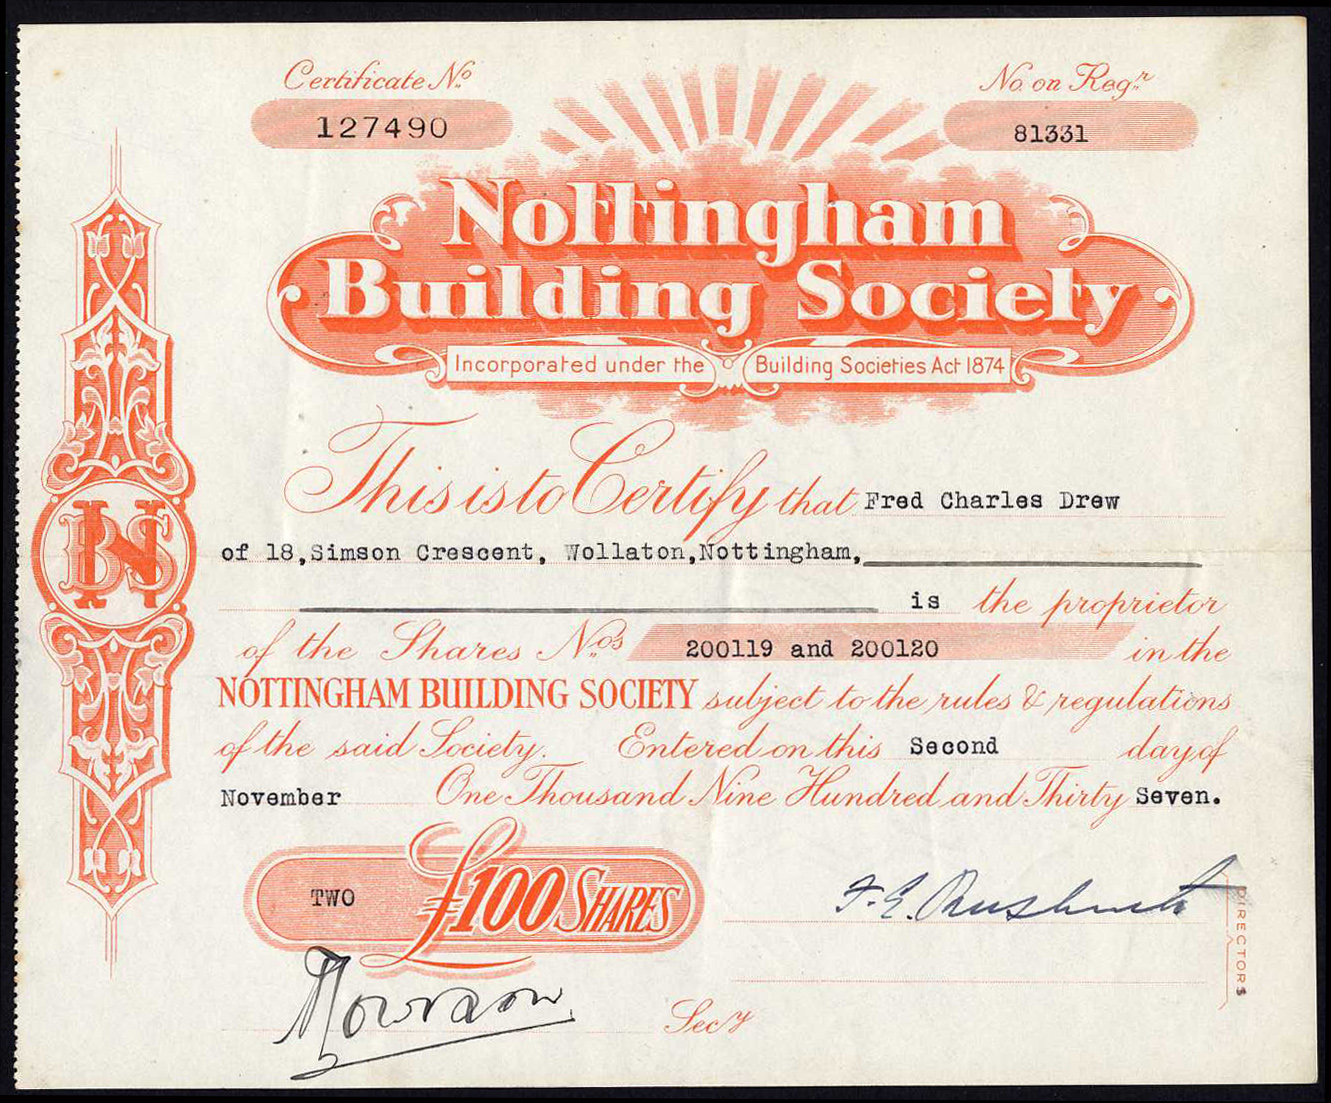 Certificate No.
No. on Regr.
127490
81331
Nottingham
Building Society
Incorporated under the Building Societies Act 1874
This is to Certify that Fred Charles Drew
of 18, Simson Crescent, Wollaton, Nottingham,
is the proprietor
of the Shares Nos. 200119 and 200120 in the
NOTTINGHAM BUILDING SOCIETY subject to the rules & regulations
of the said Society. Entered on this Second day of
November One Thousand Nine Hundred and Thirty Seven.
NBS
TWO £100 SHARES
F. E.
DIRECTORS
Secy